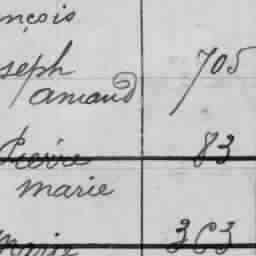 nçois
seph 705
Amand
Pierre 83
marie
Marie 363